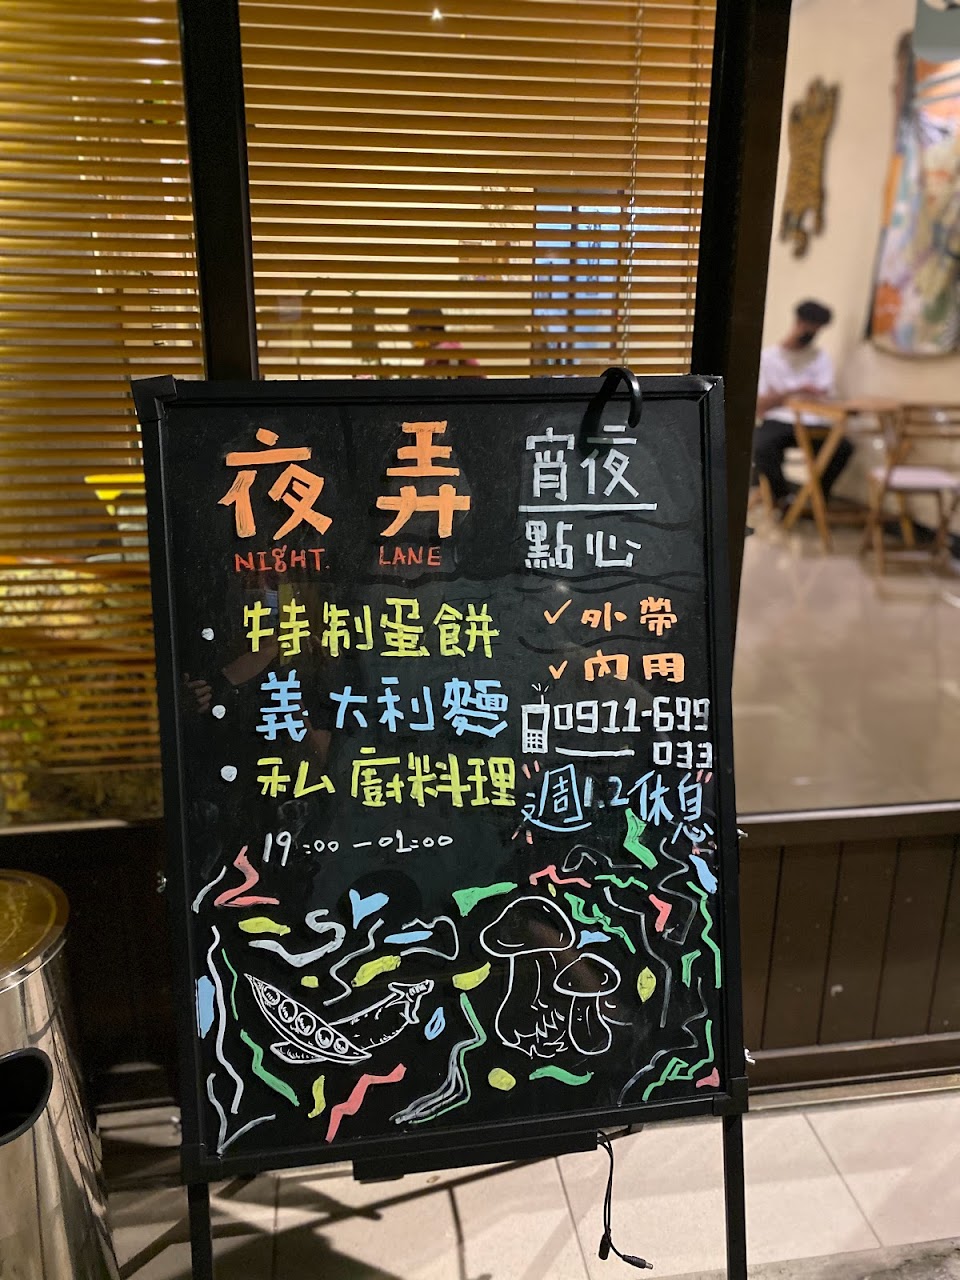 夜弄
NIGHT. LANE
宵夜
點心
特制蛋餅
義大利麵
私廚料理
19:00-01:00
✓外帶
✓內用
0911-699
033
週1.2休息